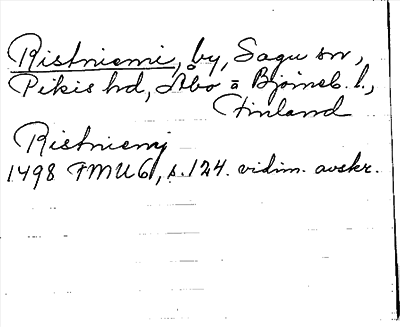 Ristniemi, by, Sagu sn,
Pikis hd, Åbo o Björneb. l.,
Finland
Ristniemj
1498 FMU6, s. 124. vidim. avskr.